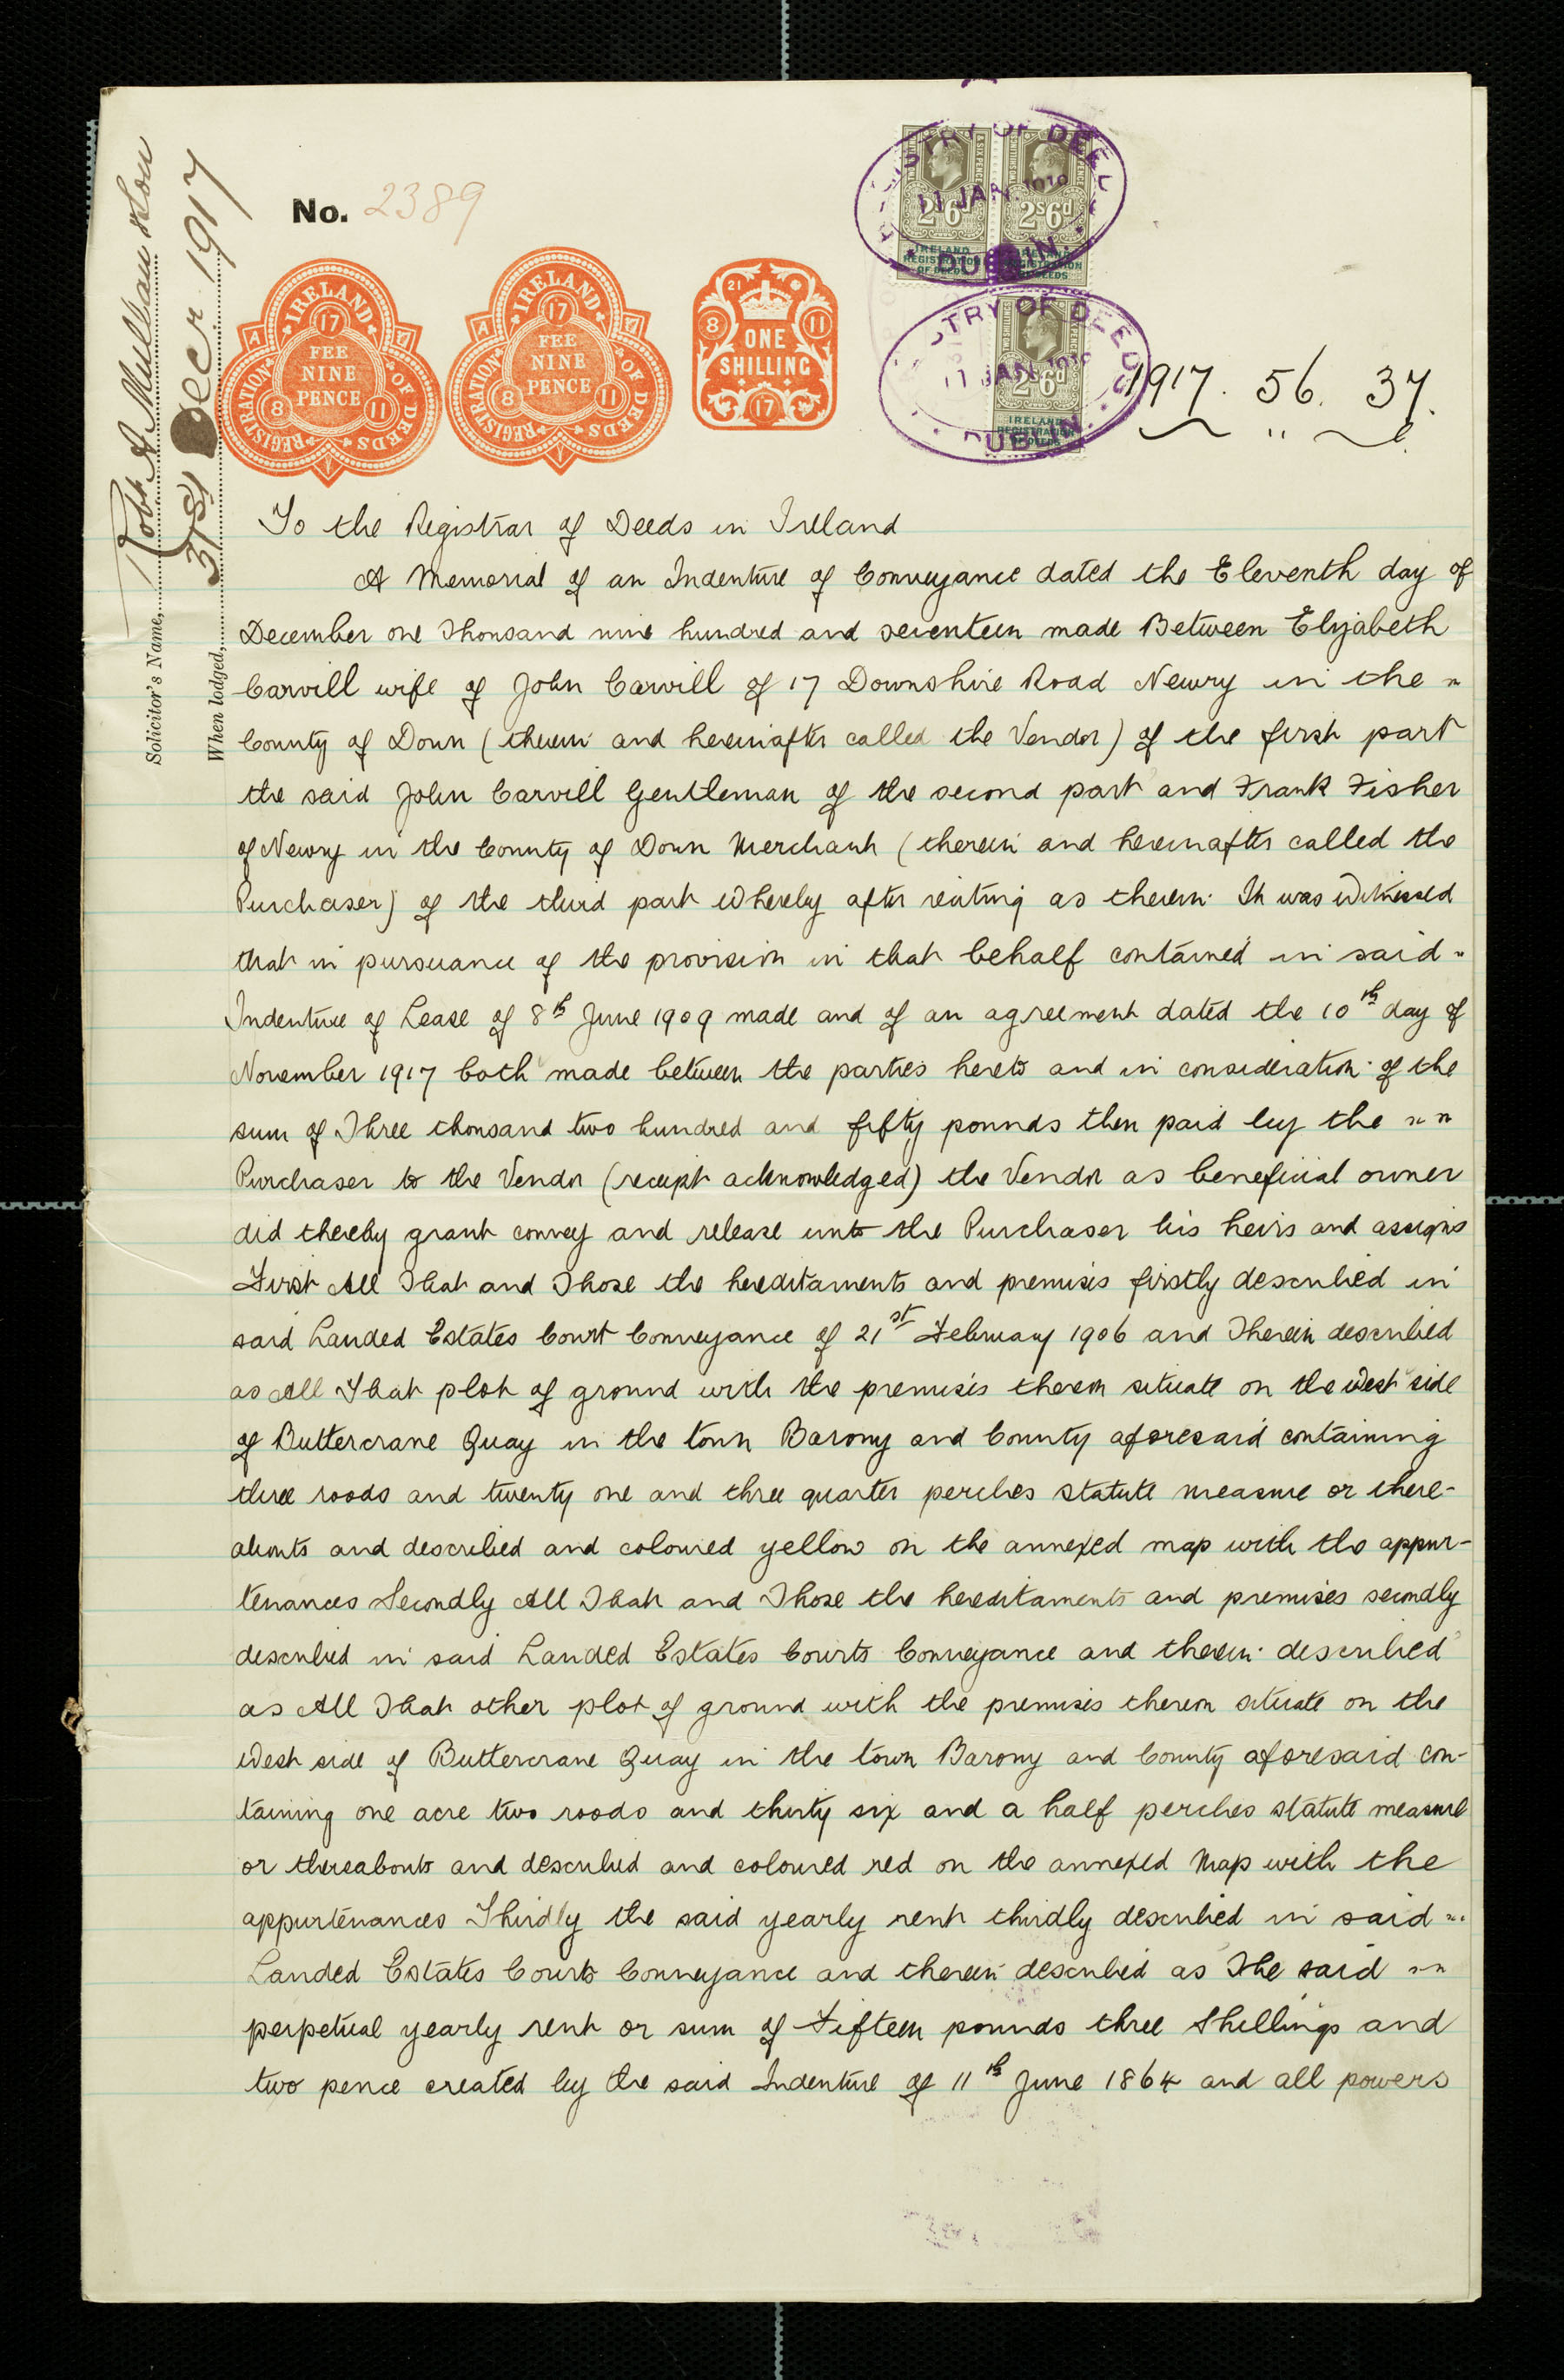 Solicitor's Name, Robt A Mullan & Son
When lodged, 31st Decr 1917
No. 2389
IRELAND
REGISTRATION OF DEEDS
17
FEE
NINE
PENCE
8 11
IRELAND
REGISTRATION OF DEEDS
17
FEE
NINE
PENCE
8 11
21
8 11
ONE
SHILLING
17
REGISTRY OF DEEDS
11 JAN 1918
DUBLIN
2s6d 2s6d
IRELAND
REGISTRATION
OF DEEDS
REGISTRY OF DEEDS
11 JAN 1918
DUBLIN
2s6d
IRELAND
REGISTRATION
OF DEEDS
1917. 56. 37.
To the Registrar of Deeds in Ireland
A Memorial of an Indenture of Conveyance dated the Eleventh day of
December one Thousand nine hundred and seventeen made Between Elizabeth
Carvill wife of John Carvill of 17 Downshire Road Newry in the "
County of Down (therein and hereinafter called the Vendor) of the first part
the said John Carvill Gentleman of the second part and Frank Fisher
of Newry in the County of Down Merchant (therein and hereinafter called the
Purchaser) of the third part Whereby after reciting as therein It was Witnessed
that in pursuance of the provision in that behalf contained in said "
Indenture of Lease of 8th June 1909 made and of an agreement dated the 10th day of
November 1917 both made between the parties hereto and in consideration of the
sum of Three thousand two hundred and fifty pounds then paid by the " "
Purchaser to the Vendor (receipt acknowledged) the Vendor as beneficial owner
did thereby grant convey and release unto the Purchaser his heirs and assigns
First All That and Those the hereditaments and premises firstly described in
said Landed Estates Court Conveyance of 21st February 1906 and Therein described
as All That plot of ground with the premises thereon situate on the West side
of Buttercrane Quay in the town Barony and County aforesaid containing
three roods and twenty one and three quarter perches statute measure or there-
abouts and described and coloured yellow on the annexed map with the appur-
tenances Secondly All That and Those the hereditaments and premises secondly
described in said Landed Estates Courts Conveyance and therein described
as All That other plot of ground with the premises thereon situate on the
West side of Buttercrane Quay in the town Barony and County aforesaid con-
taining one acre two roods and thirty six and a half perches statute measure
or thereabouts and described and coloured red on the annexed Map with the
appurtenances Thirdly the said yearly rent thirdly described in said "
Landed Estates Courts Conveyance and therein described as The said " "
perpetual yearly rent or sum of Fifteen pounds three Shillings and
two pence created by the said Indenture of 11th June 1864 and all powers